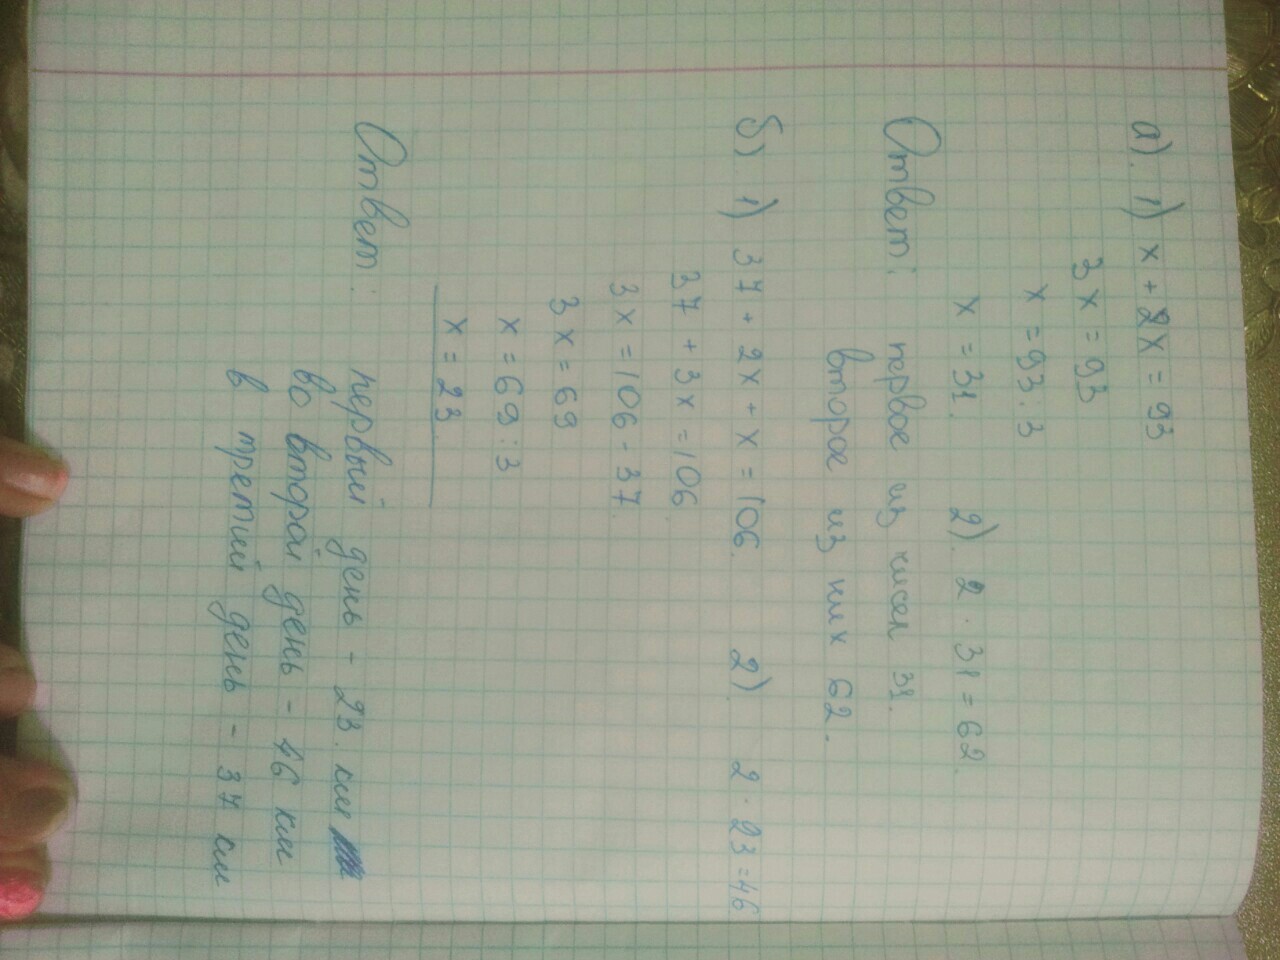 а). 1) x + 2x = 93
3x = 93
x = 93 : 3
x = 31. 2). 2 · 31 = 62.
Ответ: первое из чисел 31.
второе из них 62.
б) 1) 37 + 2x + x = 106. 2). 2 · 23 = 46
37 + 3x = 106
3x = 106 - 37.
3x = 69
x = 69 : 3
x = 23
Ответ: первый день - 23. км
во второй день - 46 км
в третий день - 37 км